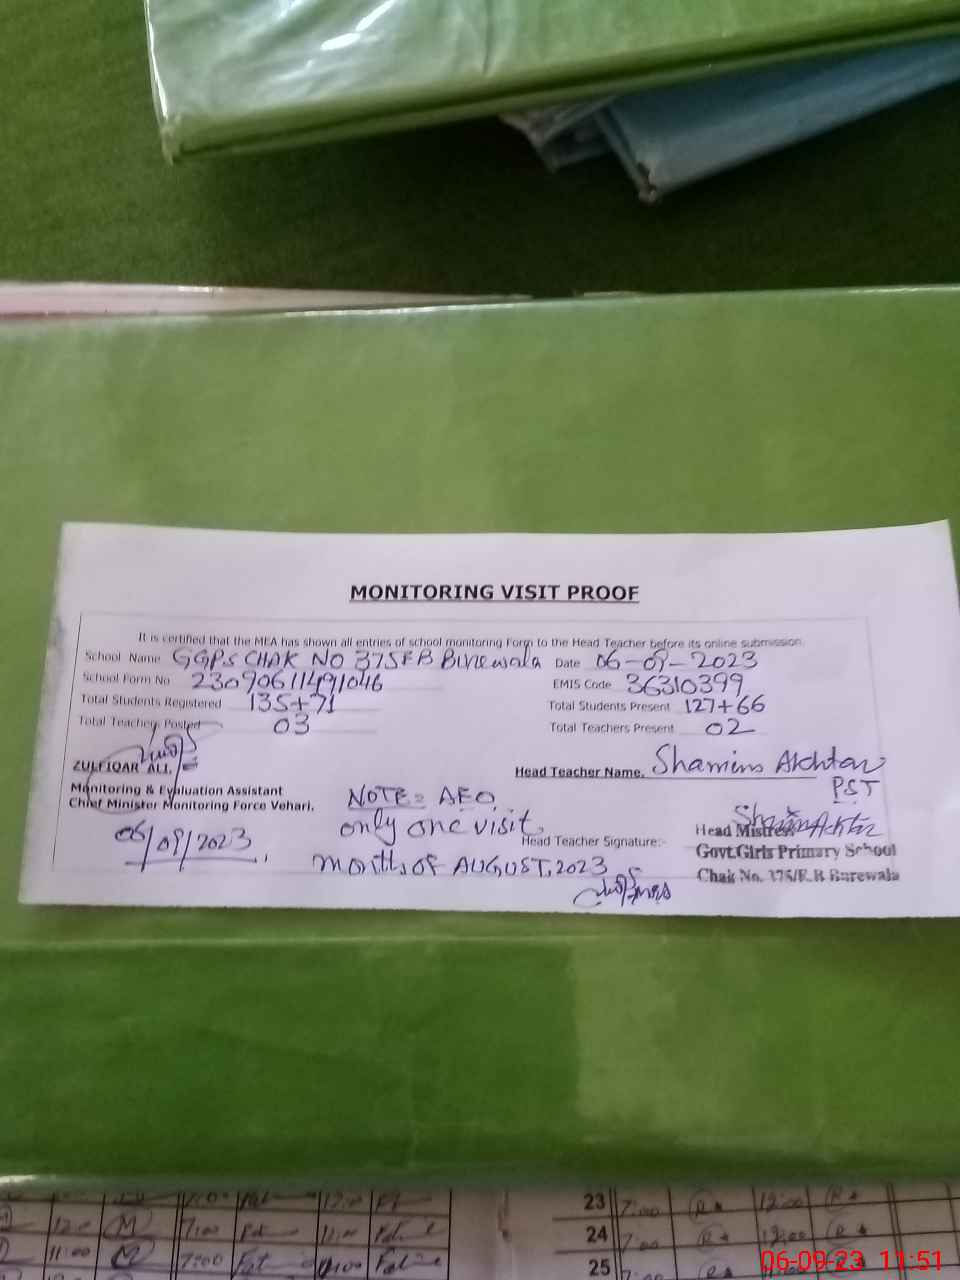 MONITORING VISIT PROOF
It is certified that the MEA has shown all entries of school monitoring Form to the Head Teacher before its online submission.
School Name GGPS CHAK NO 375EB Burewala Date 06-09-2023
School Form No 23090611491046 EMIS Code 36310399
Total Students Registered 135+71 Total Students Present 127+66
Total Teachers Posted 03 Total Teachers Present 02
ZULFIQAR ALI,
Head Teacher Name. Shamim Akhtar
PST
Monitoring & Evaluation Assistant
Chief Minister Monitoring Force Vehari.
06/09/2023
NOTE = AEO
only one visit
month of AUGUST, 2023
Head Teacher Signature:-
Head Mistress
Govt.Girls Primary School
Chak No. 375/E.B Burewala
12:0 M 7:00
11:00 M 7:00
23 7:00 12:00
24 7:00
25 7:00
06-09-23 11:51